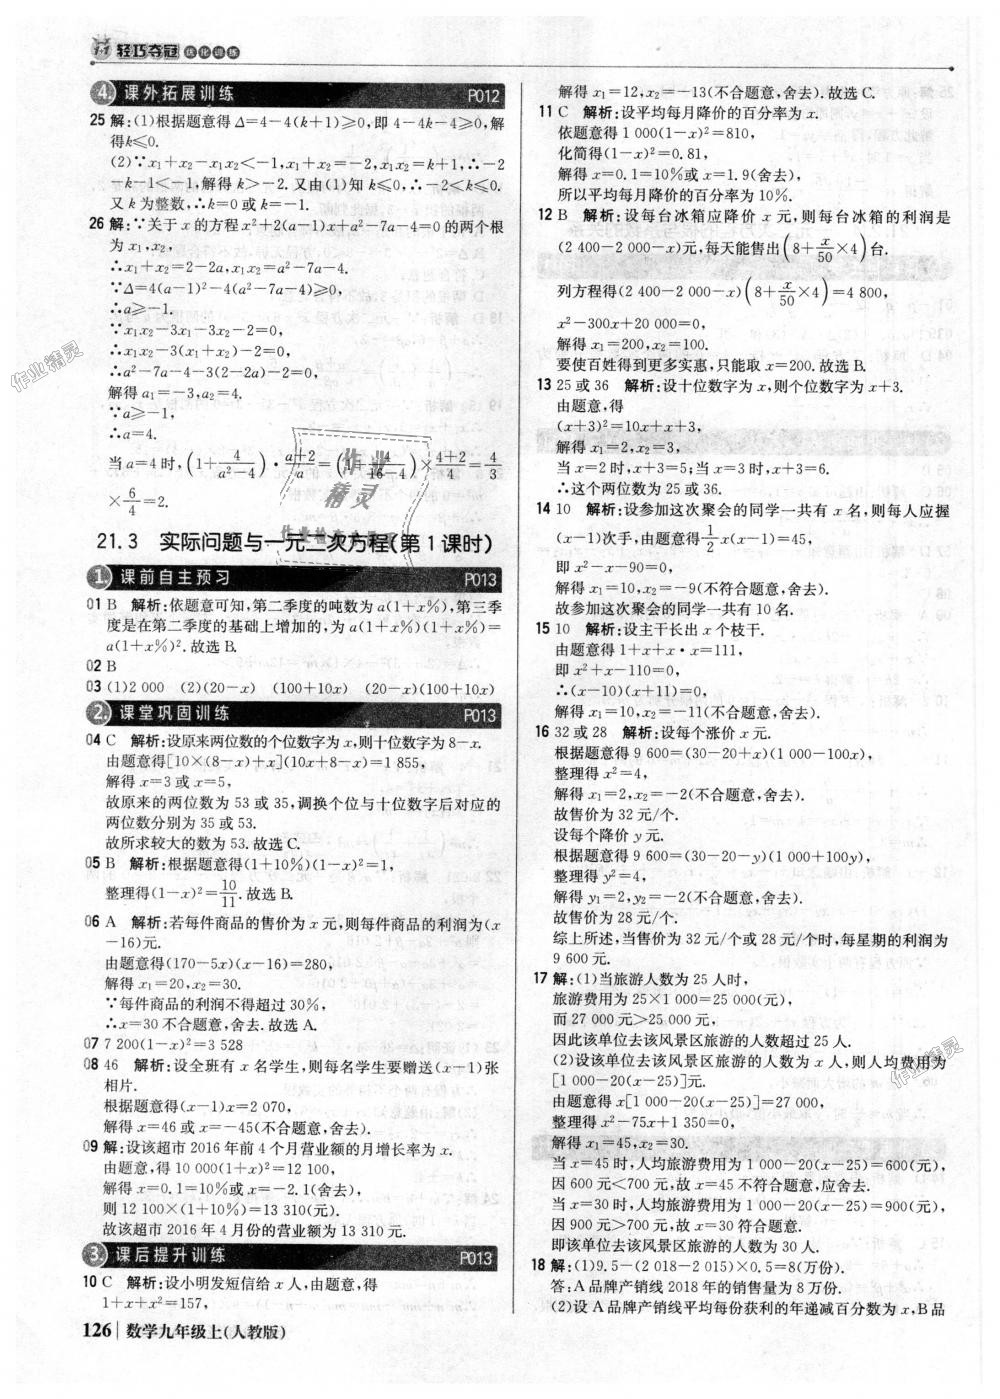 轻巧夺冠 优化训练
4. 课外拓展训练 P012
25 解:(1)根据题意得 Δ=4-4(k+1)≥0,即 4-4k-4≥0,解
得k≤0.
(2)∵x₁+x₂-x₁x₂<-1,x₁+x₂=-2,x₁x₂=k+1,∴-2
-k-1<-1,解得 k>-2. 又由(1)知 k≤0,∴-2<k≤0.
又 k 为整数,∴k=0 或 k=-1.
26 解:∵关于 x 的方程 x²+2(a-1)x+a²-7a-4=0 的两个根
为 x₁,x₂,
∴x₁+x₂=2-2a,x₁x₂=a²-7a-4.
∵Δ=4(a-1)²-4(a²-7a-4)≥0,
∴a≥-1.
∵x₁x₂-3x₁-3x₂-2=0,
∴x₁x₂-3(x₁+x₂)-2=0,
∴a²-7a-4-3(2-2a)-2=0,
解得 a₁=-3,a₂=4.
∵a≥-1,
∴a=4.
当 a=4 时,(1+4/(a²-4))·(a+2)/a=(1+4/(16-4))×(4+2)/4=4/3
×6/4=2.
21.3 实际问题与一元二次方程(第1课时)
1. 课前自主预习 P013
01 B 解析:依题意可知,第二季度的吨数为 a(1+x%),第三季
度是在第二季度的基础上增加的,为 a(1+x%)(1+x%)=
a(1+x%)². 故选 B.
02 B
03 (1)2 000 (2)(20-x) (100+10x) (20-x)(100+10x)
2. 课堂巩固训练 P013
04 C 解析:设原来两位数的个位数字为 x,则十位数字为 8-x.
由题意得[10×(8-x)+x](10x+8-x)=1 855,
解得 x=3 或 x=5,
故原来的两位数为 53 或 35,调换个位与十位数字后对应的
两位数分别为 35 或 53.
故所求较大的数为 53. 故选 C.
05 B 解析:根据题意得(1+10%)(1-x)²=1,
整理得(1-x)²=10/11. 故选 B.
06 A 解析:若每件商品的售价为 x 元,则每件商品的利润为(x
-16)元.
由题意得(170-5x)(x-16)=280,
解得 x₁=20,x₂=30.
∵每件商品的利润不得超过 30%,
∴x=30 不合题意,舍去. 故选 A.
07 7 200(1-x)²=3 528
08 46 解析:设全班有 x 名学生,则每名学生要赠送(x-1)张
相片.
根据题意得(x-1)x=2 070,
解得 x=46 或 x=-45(不合题意,舍去).
09 解:设该超市 2016 年前 4 个月营业额的月增长率为 x.
由题意,得 10 000(1+x)²=12 100,
解得 x=0.1=10%或 x=-2.1(舍去),
则 12 100×(1+10%)=13 310(元).
故该超市 2016 年 4 月份的营业额为 13 310 元.
3. 课后提升训练 P013
10 C 解析:设小明发短信给 x 人,由题意,得
1+x+x²=157,
126 数学九年级上(人教版)
解得 x₁=12,x₂=-13(不合题意,舍去). 故选 C.
11 C 解析:设平均每月降价的百分率为 x.
依题意得 1 000(1-x)²=810,
化简得(1-x)²=0.81,
解得 x=0.1=10%或 x=1.9(舍去),
所以平均每月降价的百分率为 10%.
12 B 解析:设每台冰箱应降价 x 元,则每台冰箱的利润是
(2 400-2 000-x)元,每天能售出(8+x/50×4)台.
列方程得(2 400-2 000-x)(8+x/50×4)=4 800,
x²-300x+20 000=0,
解得 x₁=200,x₂=100.
要使百姓得到更多实惠,只能取 x=200. 故选 B.
13 25 或 36 解析:设十位数字为 x,则个位数字为 x+3.
由题意,得
(x+3)²=10x+x+3,
解得 x₁=2,x₂=3,
当 x=2 时,x+3=5;当 x=3 时,x+3=6.
∴这个两位数为 25 或 36.
14 10 解析:设参加这次聚会的同学一共有 x 名,每人应握
(x-1)次手,由题意得1/2x(x-1)=45,
即 x²-x-90=0,
解得 x₁=10,x₂=-9(不符合题意,舍去).
故参加这次聚会的同学一共有 10 名.
15 10 解析:设主干长出 x 个枝干.
由题意得 1+x+x·x=111,
即 x²+x-110=0,
∴(x-10)(x+11)=0,
解得 x₁=10,x₂=-11(不合题意,舍去).
16 32 或 28 解析:设每个涨价 x 元.
根据题意得 9 600=(30-20+x)(1 000-100x),
整理得 x²=4,
解得 x₁=2,x₂=-2(不合题意,舍去).
故售价为 32 元/个.
设每个降价 y 元.
根据题意得 9 600=(30-20-y)(1 000+100y),
整理得 y²=4,
解得 y₁=2,y₂=-2(不合题意,舍去).
故售价为 28 元/个.
综上所述,当售价为 32 元/个或 28 元/个时,每星期的利润为
9 600 元.
17 解:(1)当旅游人数为 25 人时,
旅游费用为 25×1 000=25 000(元),
而 27 000 元>25 000 元,
因此该单位去该风景区旅游的人数超过 25 人.
(2)设该单位去该风景区旅游的人数为 x 人,则人均费用为
[1 000-20(x-25)]元.
由题意得 x[1 000-20(x-25)]=27 000,
整理得 x²-75x+1 350=0,
解得 x₁=45,x₂=30.
当 x=45 时,人均旅游费用为 1 000-20(x-25)=600(元),
因 600 元<700 元,故 x=45 不符合题意,应舍去.
当 x=30 时,人均旅游费用为 1 000-20(x-25)=900(元),
因 900 元>700 元,故 x=30 符合题意.
即该单位去该风景区旅游的人数为 30 人.
18 解:(1)9.5-(2 018-2 015)×0.5=8(万份).
答:A 品牌产销线 2018 年的销售量为 8 万份.
(2)设 A 品牌产销线平均每份获利的年递减百分数为 x,B 品
作业精灵
作业精灵
作业精灵